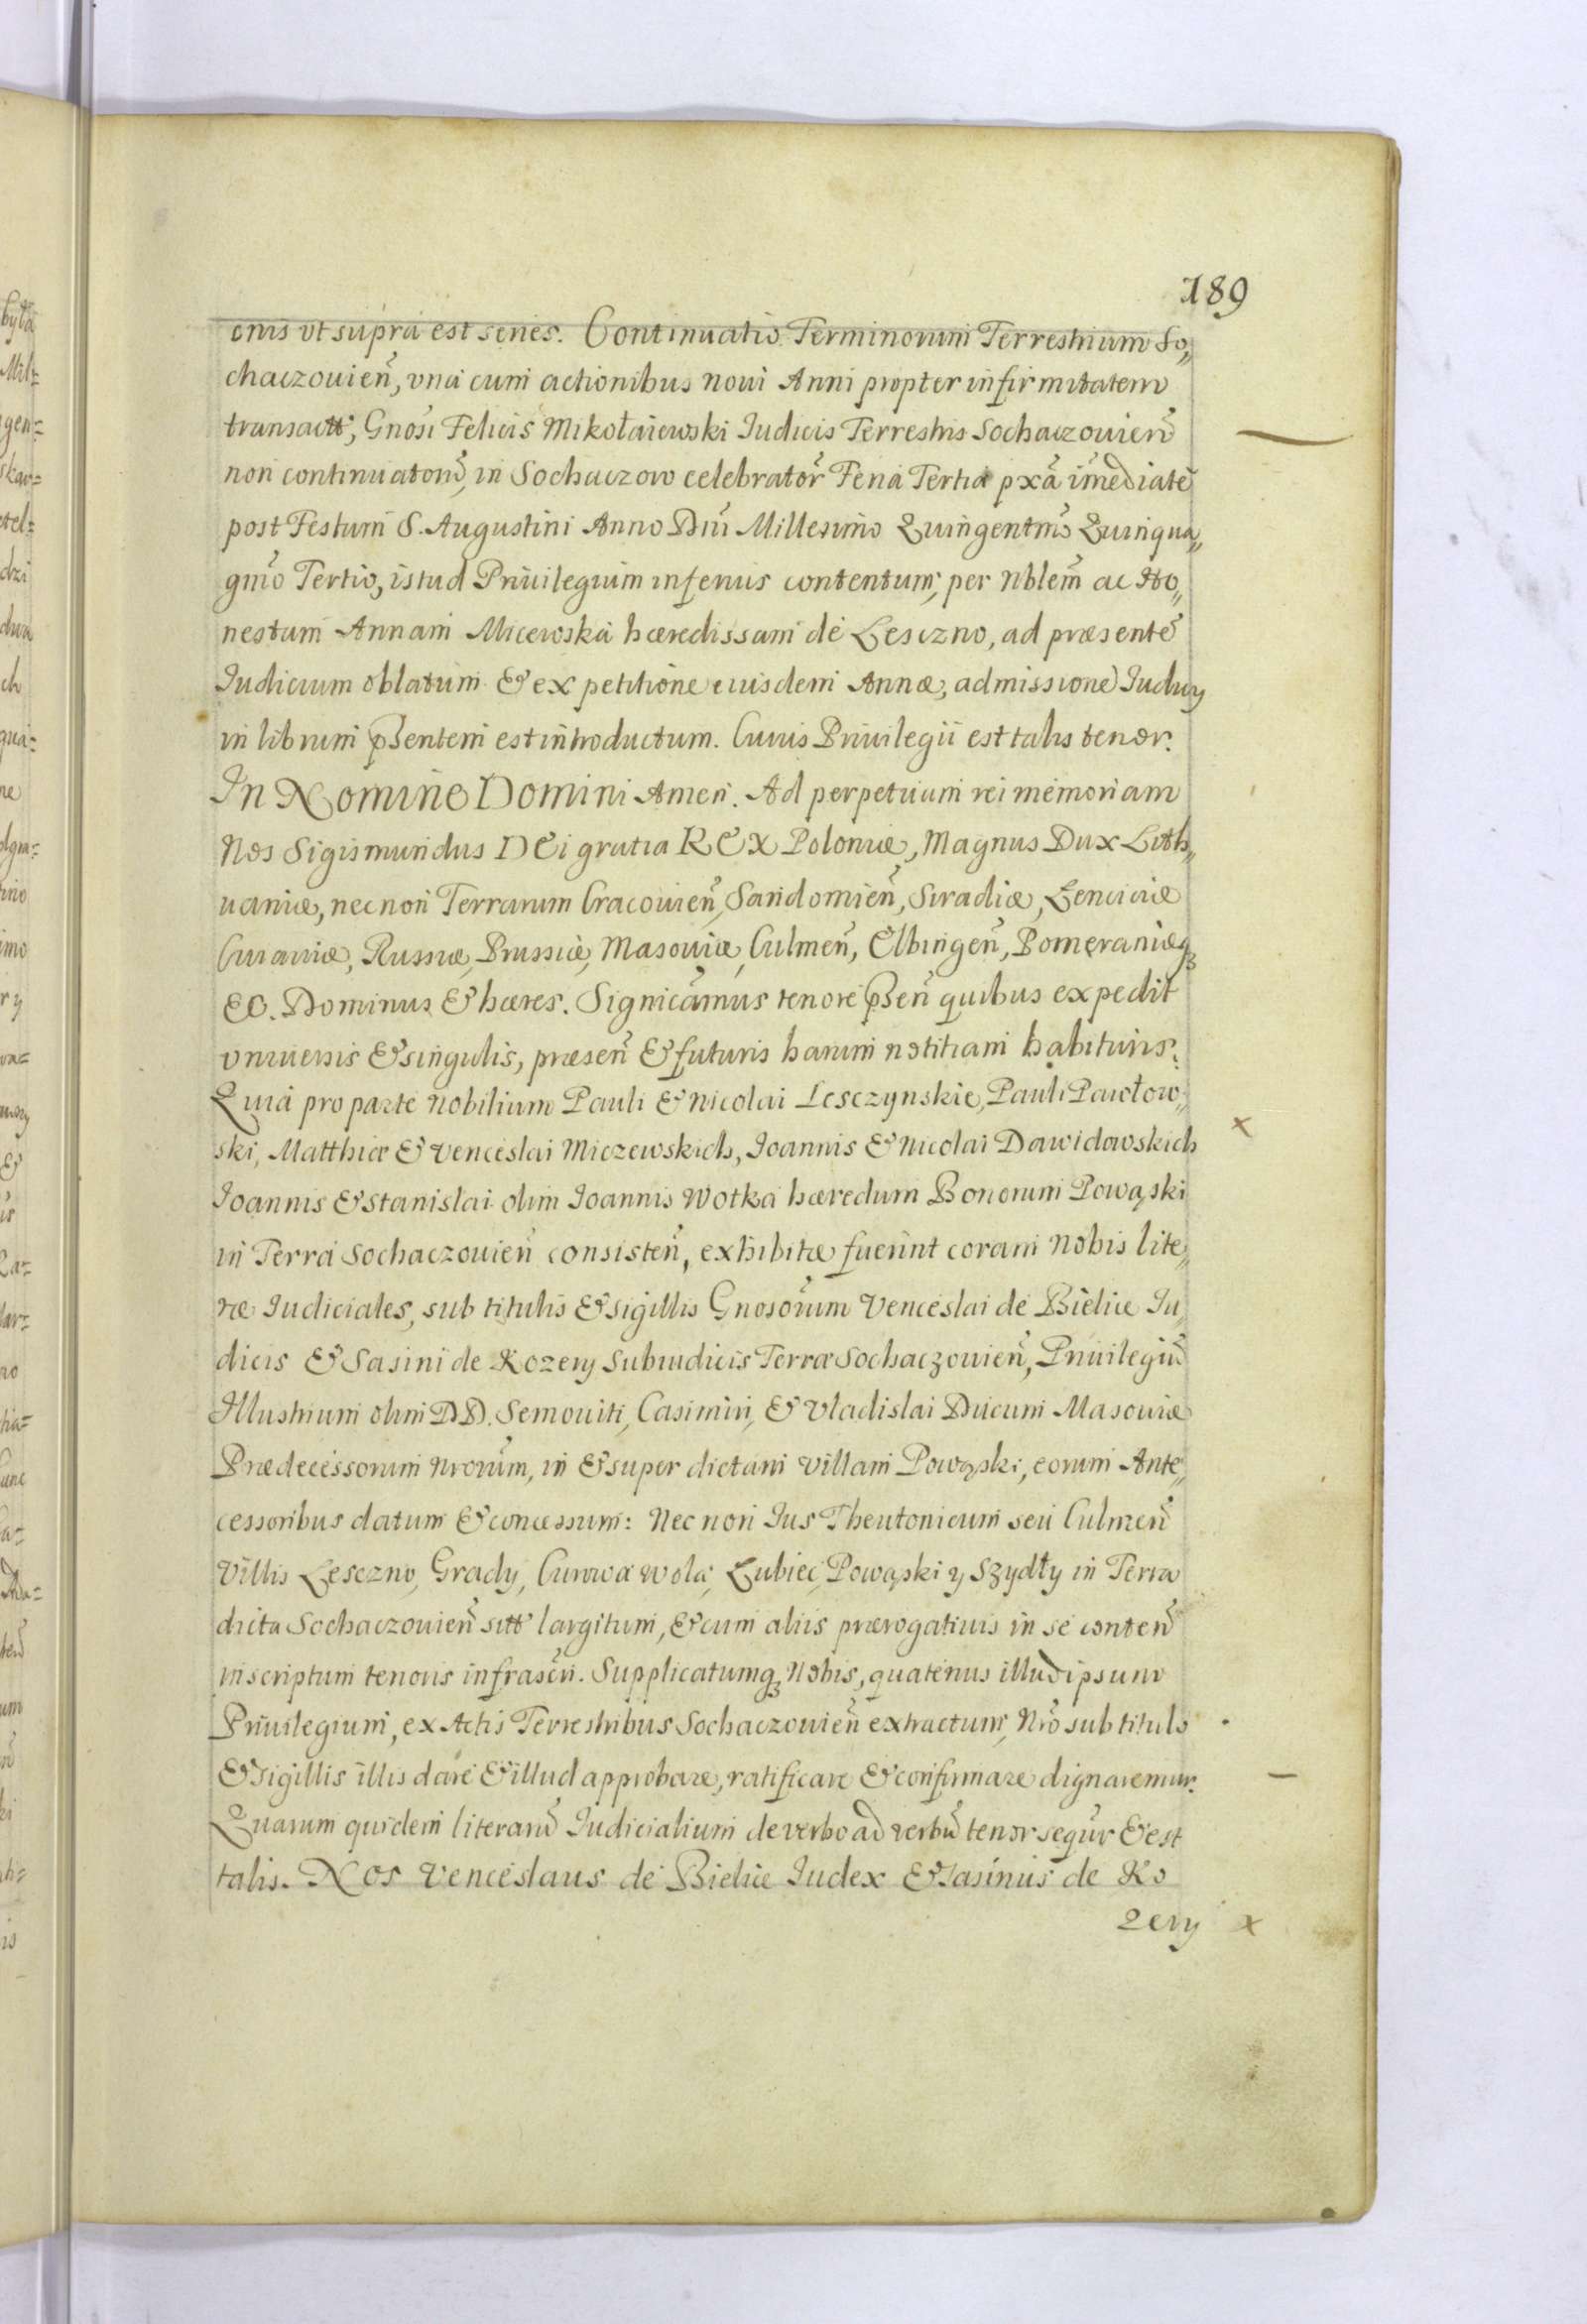 189
onis vt supra est series. Continuatio Terminorum Terrestrium So„
chaczouień, vna cum actionibus noui Anni propter infirmitatem
transactt, Gnosi Felicis Mikołaiewski Iudicis Terrestris Sochaczouień
non continuatorũ, in Sochaczow celebrator̃ Feria Tertia pxã im̃ediatè
post Festum S. Augustini Anno Dñi Millesimo Quingentmõ Quinqua„
gmõ Tertio, istud Priuilegium inferius contentum, per Nblem̃ ac Ho„
nestam Annam Micewska hæredissam de Leszno, ad præsente᷉
Iudicium oblatum & ex petitione eiusdem Annæ, admissione Iudicy
in librum pn̄tem est introductum. Cuius Priuilegii est talis tenor.
In Nomine Domini Amen. Ad perpetuam rei memoriam
Nos Sigismundus DEi gratia REX Poloniæ, Magnus Dux Lith„
uaniæ, nec non Terrarum Cracouień, Sandomień, Siradiæ, Lenciciæ
Cuiauiæ, Russiæ, Prussiæ, Masouiæ, Culmeñ, Elbingeñ, Pomeraniæq3
&c. Dominus & hæres. Signicãmus tenore pn̄ quibus expedit
vniuersis & singulis, præseñ & futuris harum notitiam habituris.
Quia pro parte nobilium Pauli & Nicolai Lesczynskie, Pauli Pawłow„
ski, Matthiæ & Venceslai Miczewskich, Ioannis & Nicolai Dawidowskich
Ioannis & Stanislai olim Ioannis Wotka hæredum Bonorum Powąski
in Terra Sochaczouień consisteñ, exhibitæ fuerunt coram Nobis lite„
ræ Iudiciales, sub titulis & sigillis Gnosorum Venceslai de Bielice Iu„
dicis & Sasini de Kozery Subiudicis Terræ Sochaczouień, Priuilegiũ
Illustrium olim DD. Semouiti, Casimiri, & Vladislai Ducum Masouiæ
Prædecessorum Nrorum, in & super dictam villam Powąski, eorum Ante„
cessoribus datum & concessum: Nec non Ius Theutonicum seu Culmeñ
Villis Lesczno, Grady, Curowa wola, Lubiec, Powąski y Szydły in Terra
dicta Sochaczouień sitt largitum, & cum aliis prærogatiuis in se conteñ
inscriptum tenoris infrascri. Supplicatumq3 Nobis, quatenus illud ipsum
Priuilegium, ex Actis Terrestribus Sochaczouień extractum, Nr̃o sub titulo
& sigillis illis dare & illud approbare, ratificare & confirmare dignaremur.
Quarum quidem literarũ Iudicialium de verbo ad verbũ tenor sequr̃ & est
talis. Nos Venceslaus de Bielice Iudex & Sasinus de Ko
zery